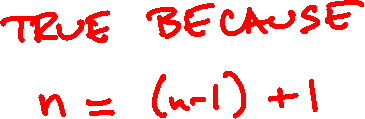 TRUE BECAUSE
n = (n-1) + 1